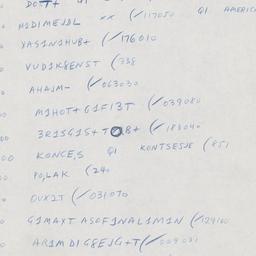 QI AMERIC
HIDIMEJBL xx (/117050
YASINIHUB+ (/176010
VUDIK8ENST (338
AHAJM- (/063030
MIHOT+GIFI3T (/039080
3RISGIS+TO8+ (/183040
KONCE,S QI KONTSESJE (851
PO,LAK (240
OUXIT (/031070
GIMAXT ASOFINALIMIN (/129100
ARIMDIG8EJG+T(/009031